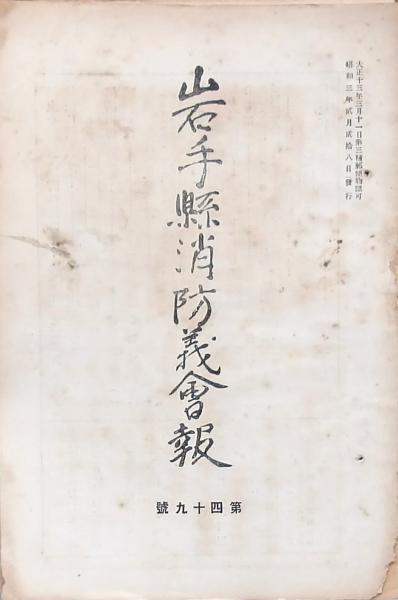 大正十三年三月十一日第三種郵便物認可
昭和三年貳月貳拾八日發行
岩手縣消防義會報
第四十九號